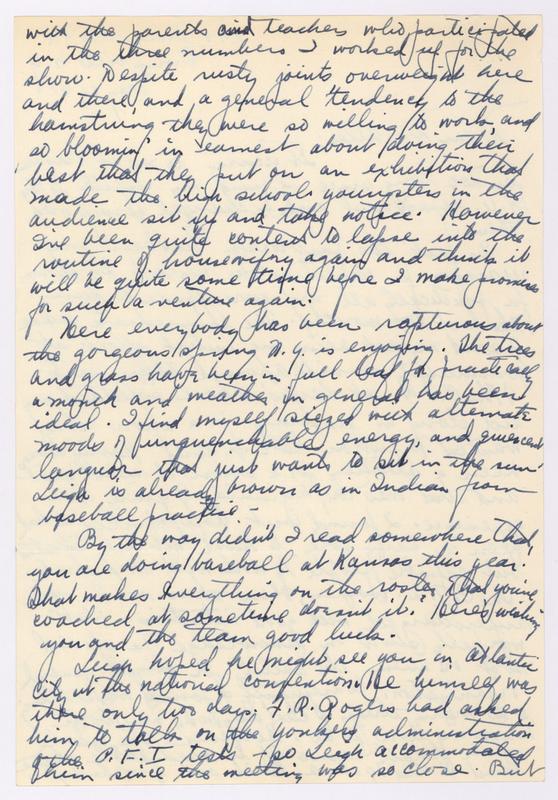 with the parents and teachers who participated
in the three numbers I worked up for the
show. Despite rusty joints overweight here
and there, and a general tendency to the
hamstring they were so willing to work, and
so bloomin' in earnest about doing their
best that they put on an exhibition that
made the high school youngsters in the
audience sit up and take notice. However
I've been quite content to lapse into the
routine of housewifery again and think it
will be quite some time before I make promises
for such a venture again.
Here everybody has been rapturous about
the gorgeous spring N.Y. is enjoying. The trees
and grass have been in full leaf for practically
a month and weather in general has been
ideal. I find myself siezed with alternate
moods of unquenchable energy, and quiescent
languor that just wants to sit in the sun.
Leigh is already brown as in Indian from
baseball practise -
By the way didn't I read somewhere that
you are doing baseball at Kansas this year?
That makes everything on the roster that you've
coached at sometime doesn't it? Here's wishing
you and the team good luck.
Leigh hoped he might see you in Atlantic
City at the national convention. He himself was
there only two days. F. R. Rogers had asked
him to talk on the Yonkers administration
of the P.F.I tests - so Leigh accommodated
him since the meeting was so close. But